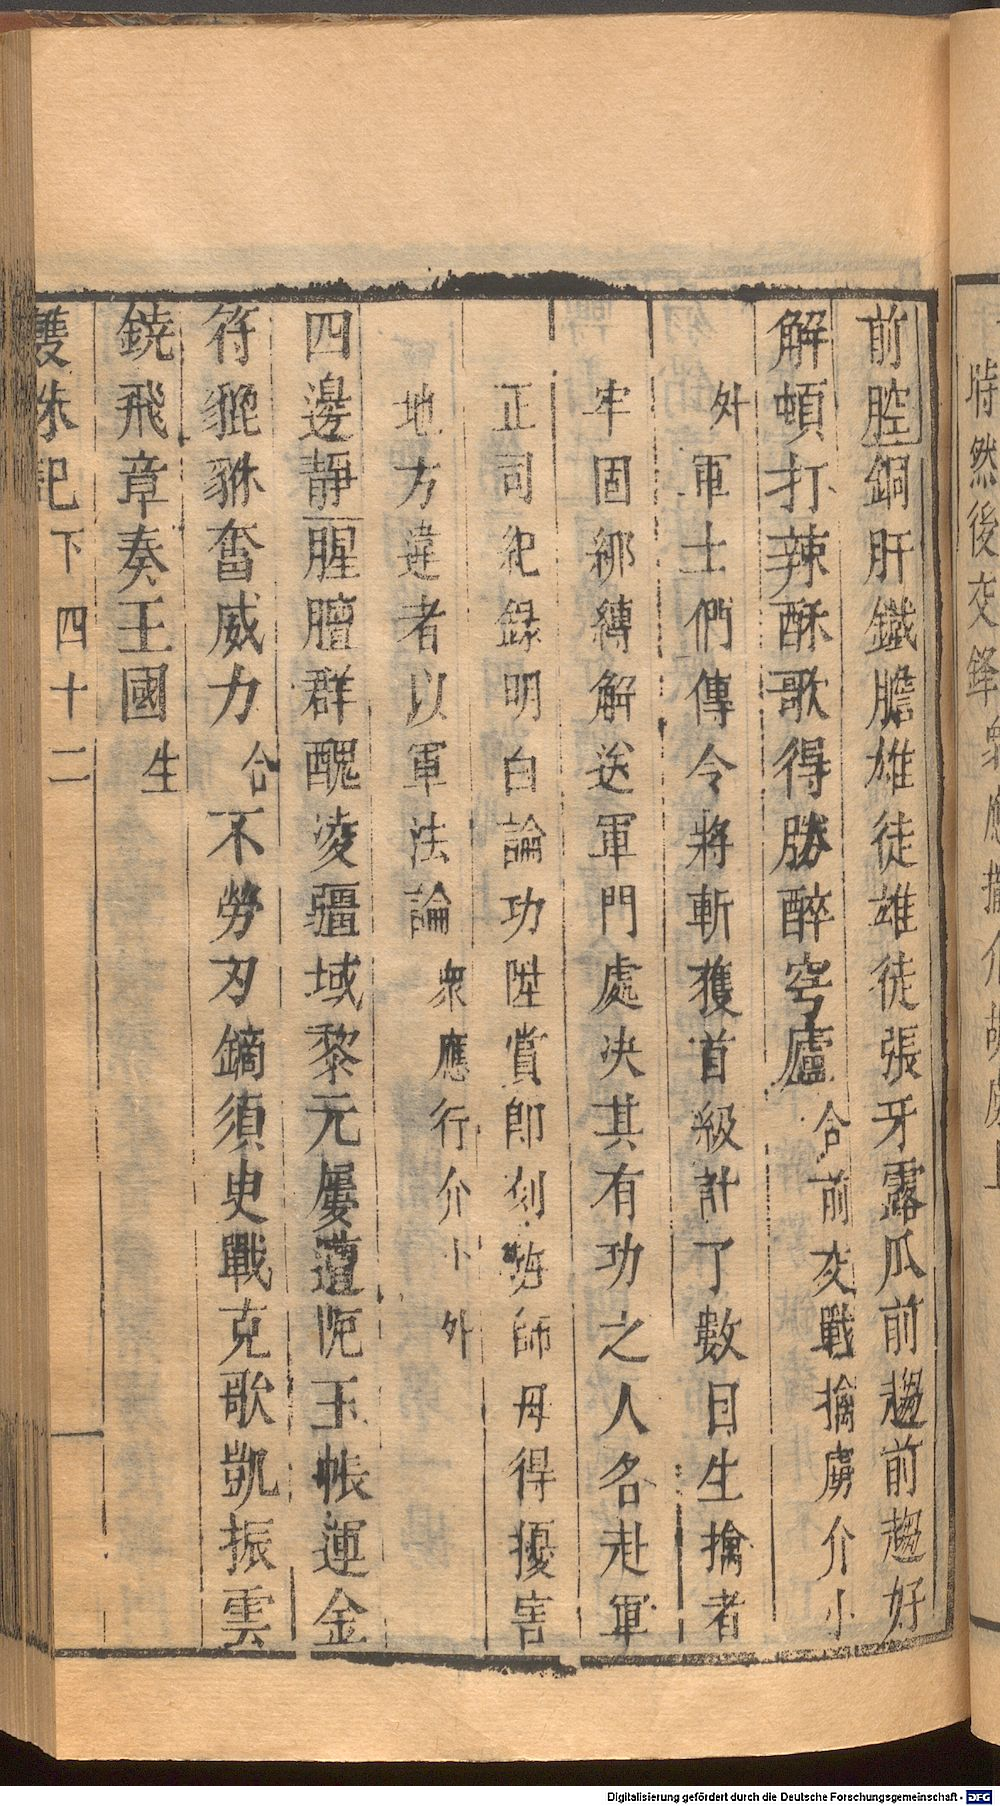 時然後交鋒衆應
前腔銅肝鐵膽雄徒雄徒張牙露瓜前趨前趨好
解頓打辣酥歌得勝醉穹廬合前交戰擒虜介小
外軍士們傳令將斬獲首級計了數目生擒者
牢固綁縛解送軍門處决其有功之人名赴軍
正司紀録明白論功陞賞即刻班師毋得擾害
地方違者以軍法論衆應行介小外
四邊靜腥膻群醜凌疆域黎元屢遭阨玉帳運金
符貔貅奮威力合不勞刃鏑須史戰克歌凱振雲
鐃飛章奏王國生
雙珠記下四十二
Digitalisierung gefördert durch die Deutsche Forschungsgemeinschaft - DFG